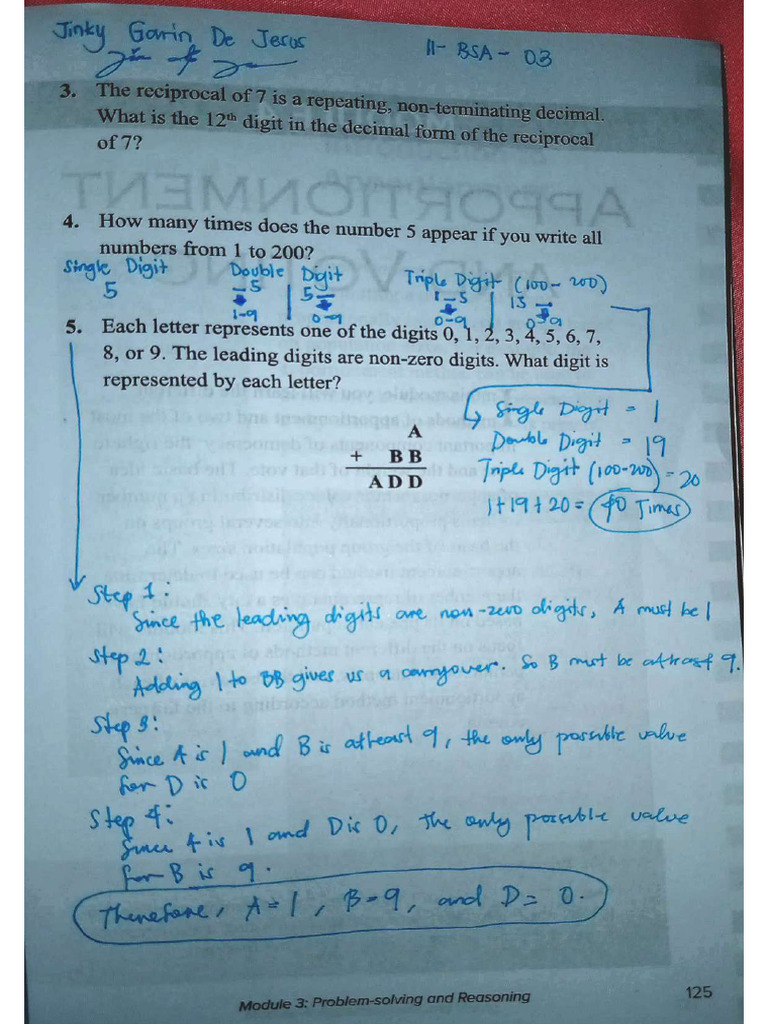 Jinky Garin De Jesus 11-BSA-03
3. The reciprocal of 7 is a repeating, non-terminating decimal.
What is the 12th digit in the decimal form of the reciprocal
of 7?
4. How many times does the number 5 appear if you write all
numbers from 1 to 200?
Single Digit Double Digit Triple Digit (100-200)
5 _5 5_ 1_5 15_
1-9 0-9 0-9 0-9
5. Each letter represents one of the digits 0, 1, 2, 3, 4, 5, 6, 7,
8, or 9. The leading digits are non-zero digits. What digit is
represented by each letter?
Single Digit = 1
A
Double Digit = 19
+ BB
Triple Digit (100-200) = 20
ADD
1+19+20 = 40 Times
Step 1:
Since the leading digits are non-zero digits, A must be 1
Step 2:
Adding 1 to BB gives us a carryover. So B must be atleast 9.
Step 3:
Since A is 1 and B is atleast 9, the only possible value
for D is 0
Step 4:
Since A is 1 and D is 0, the only possible value
for B is 9.
Therefore, A=1, B=9, and D=0.
Module 3: Problem-solving and Reasoning 125